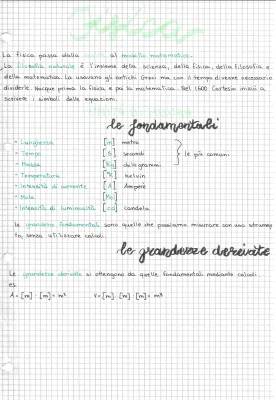 Fisica
La fisica passa dalla realtà al modello matematico.
La filosofia naturale è l'insieme della scienza, della fisica, della filosofia e
della matematica. La usavano gli antichi Greci ma con il tempo divenne necessario
dividerle. Nacque prima la fisica e poi la matematica. Nel 1600 Cartesio iniziò a
scrivere i simboli delle equazioni.
le fondamentali
- Lunghezza [m] metro
- Tempo [s] secondi
- Massa [Kg] chilogrammi
} le più comuni
- Temperatura [°K] kelvin
- Intensità di corrente [A] Ampere
- Mole [Mol]
- Intensità di luminosità [cd] candela
le grandezze fondamentali sono quelle che possiamo misurare con uno strumen
to, senza utilizzare calcoli.
le grandezze derivate
Le grandezze derivate si ottengono da quelle fondamentali mediante calcoli
es:
A = [m] · [m] = m² V = [m] · [m] · [m] = m³